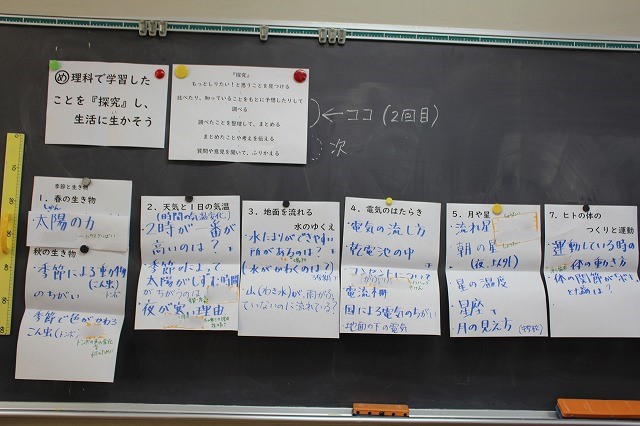 め理科で学習した
ことを『探究』し、
生活に生かそう
『探究』
もっとしりたい！と思うことを見つける
比べたり、知っていることをもとに予想したりして
調べる
調べたことを整理して、まとめる
まとめたことや考えを伝える
質問や意見を聞いて、ふりかえる
←ココ(2回目)
次
季節と生き物
1．春の生き物
太陽の力
秋の生き物
・季節による動物
(こん虫)
のちがい
トンボ
季節で色がかわる
こん虫(トンボ)
2．天気と1日の気温
(時間の気温変化)
・2時が一番が
高いのは？
・季節によって
太陽がしずむ時間
がちがうのは
・夜が寒い理由
3．地面を流れる
水のゆくえ
・水たまりができやすい
所があるのは？
(水がかわくのは？)
・山(わき水)が、雨がふっ
ていないのに流れている？
4．電気のはたらき
・電気の流し方
・乾電池の中
・コンセントについて
・電流
・国による電気のちがい
・地面の下の電気
5．月や星
・流れ星
・朝の星
(夜以外)
・星の温度
・星座
・月の見え方
7．ヒトの体の
つくりと運動
・運動している時の
体の動き方
・体の関節が